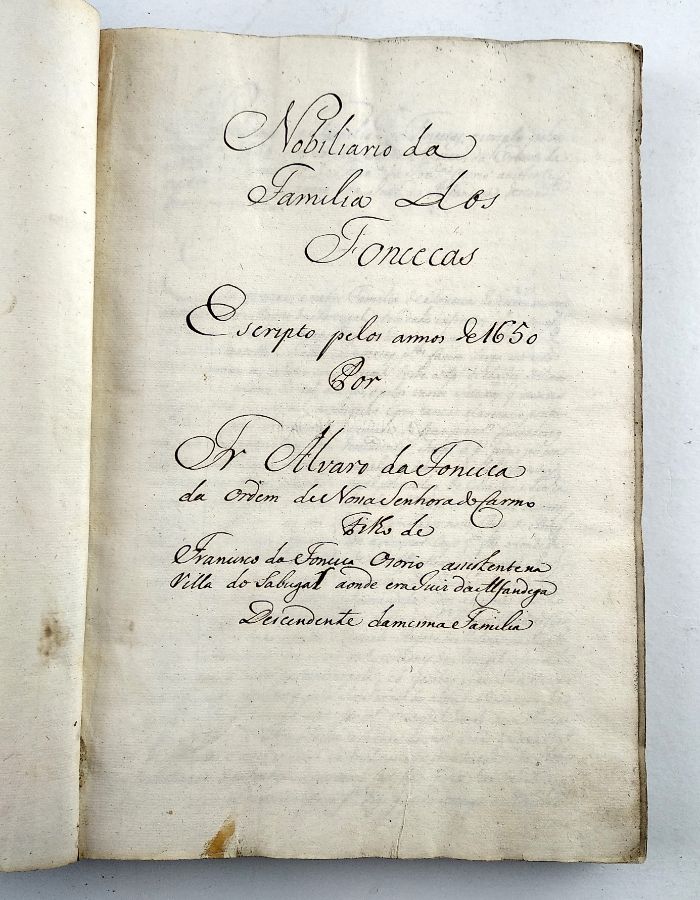 Nobiliario da
Familia dos
Foncecas
Escripto pelos annos de 1650
Por
Fr Alvaro da Fonceca
da Ordem de Nossa Senhora do Carmo
Filho de
Francisco da Fonceca Ozorio assistente na
Villa do Sabugal aonde era Juiz da Alfandega
Descendente da mesma Familia